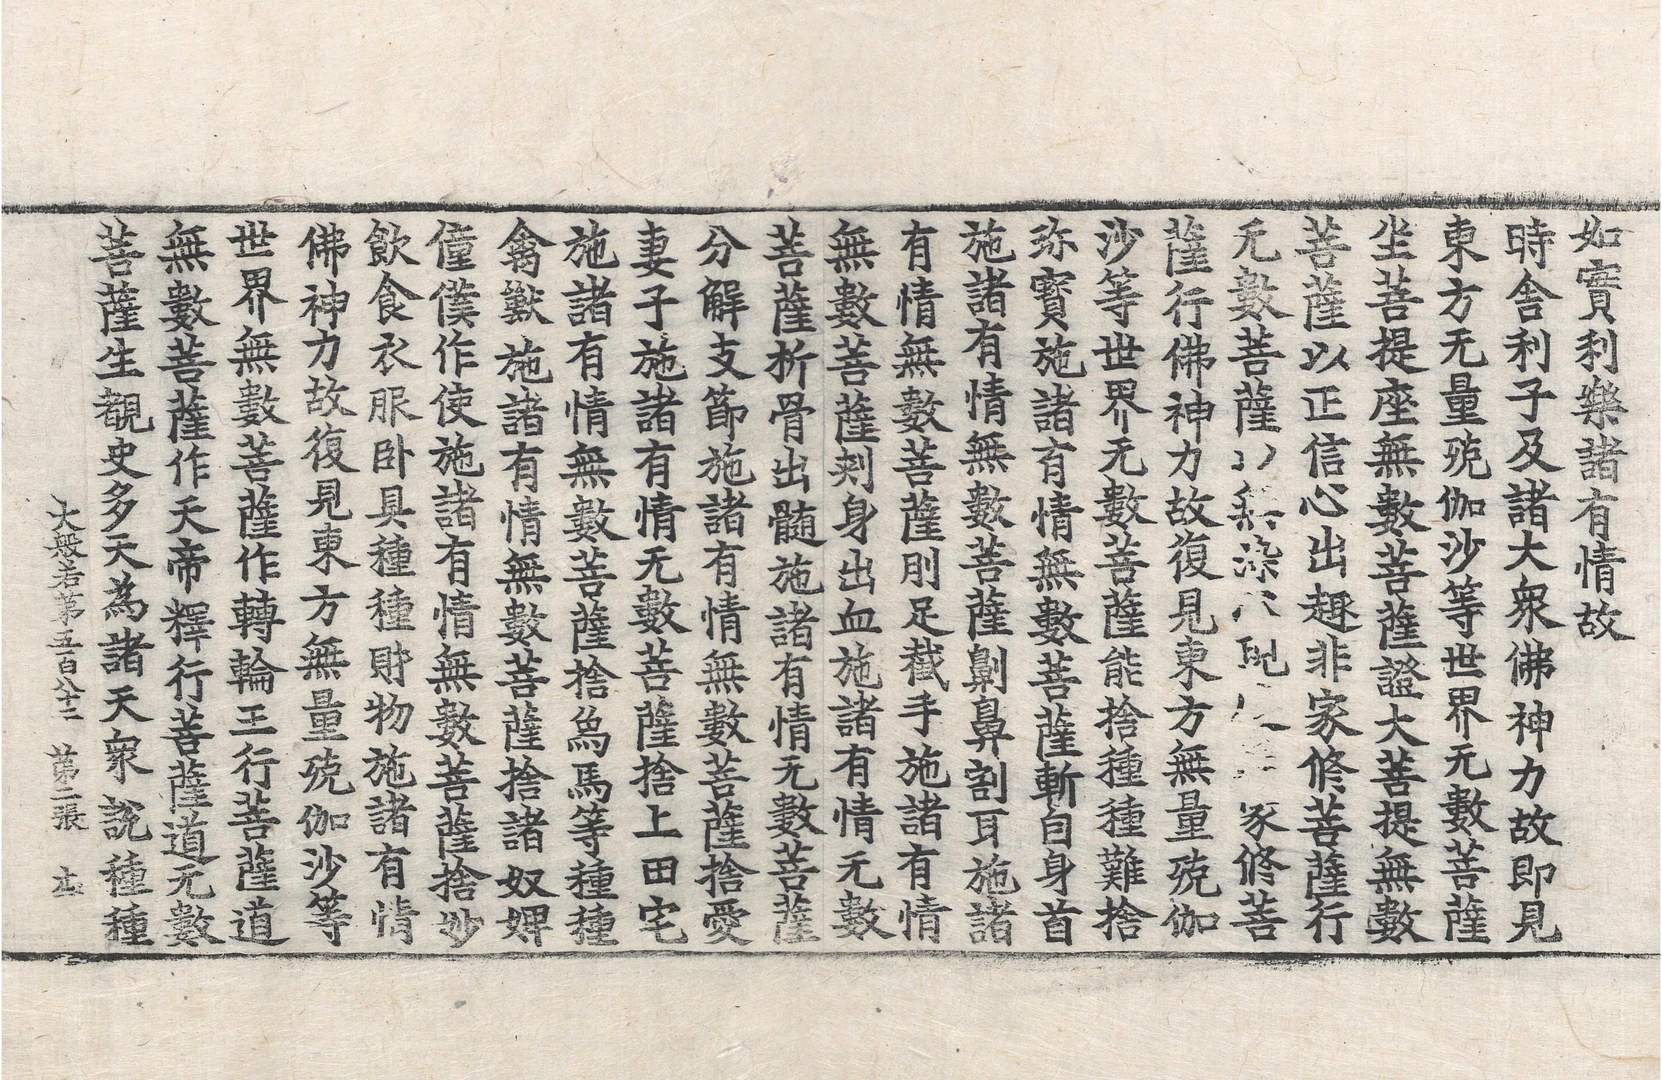 如實利樂諸有情故
時舍利子及諸大衆佛神力故即見
東方无量殑伽沙等世界无數菩薩
坐菩提座無數菩薩證大菩提無數
菩薩以正信心出趣非家修菩薩行
无數菩薩 染 現 家修菩
薩行佛神力故復見東方無量殑伽
沙等世界无數菩薩能捨種種難捨
珎寶施諸有情無數菩薩斬自身首
施諸有情無數菩薩劓鼻割耳施諸
有情無數菩薩刖足截手施諸有情
無數菩薩刾身出血施諸有情无數
菩薩析骨出髓施諸有情无數菩薩
分解支節施諸有情無數菩薩捨愛
妻子施諸有情无數菩薩捨上田宅
施諸有情無數菩薩捨爲馬等種種
禽獸施諸有情無數菩薩捨諸奴婢
僮僕作使施諸有情無數菩薩捨妙
飲食衣服卧具種種財物施諸有情
佛神力故復見東方無量殑伽沙等
世界無數菩薩作轉輪王行菩薩道
無數菩薩作天帝釋行菩薩道无數
菩薩生覩史多天為諸天衆說種種
大般若第五百八十二 第二張